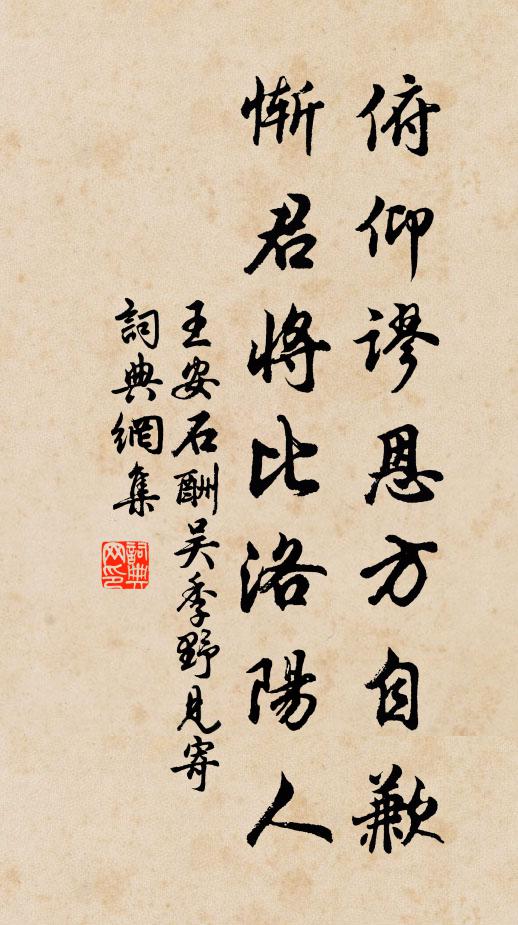 俯仰謬恩方自歉
慚君將比洛陽人
王安石酬吴季野見寄
詞典網集
詞典网印